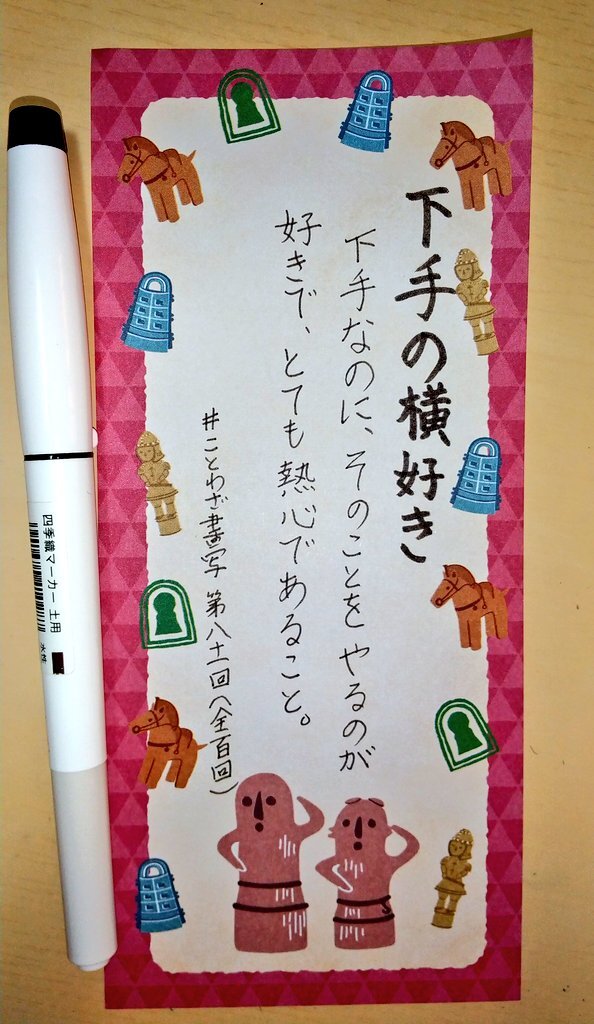 下手の横好き
下手なのに、そのことをやるのが
好きで、とても熱心であること。
#ことわざ書写 第八十一回(全百回)
四季織マーカー 土用
水性